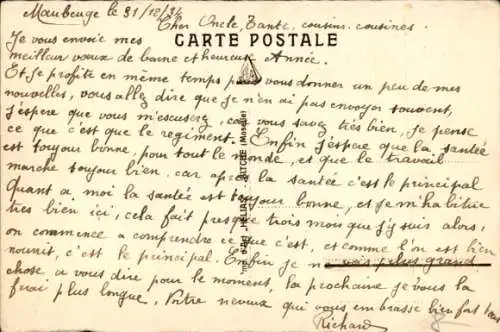 Maubeuge le 31/12/34
Cher Oncle, Tante, cousins. cousines.
Je vous envoie mes
CARTE POSTALE
meilleur vœux de bonne et heureux Année.
Et je profite en même temps pour vous donner un peu de mes
nouvelles, vous allez dire que je n'en ai pas envoyer souvent,
j'espère que vous m'escuserez, car vous savez très bien, je pense
ce que c'est que le regiment. Enfin j'espère que la santée
est toujour bonne, pour tout le monde, et que le travail
marche toujour bien, car après la santée c'est le principal
Quant a moi la santée est toujour bonne, et je m'habitue
très bien ici, cela fait presque trois mois que j'y suis alors,
on commence a comprendre ce que c'est, et comme l'on est bien
nourrit, c'est le principal. Enfin je ne vois plus grand
chose, a vous dire pour le moment, la prochaine je vous la
ferai plus longue. Votre neveux qui vous embrasse bien fort
Richard
BITCHE (Moselle)